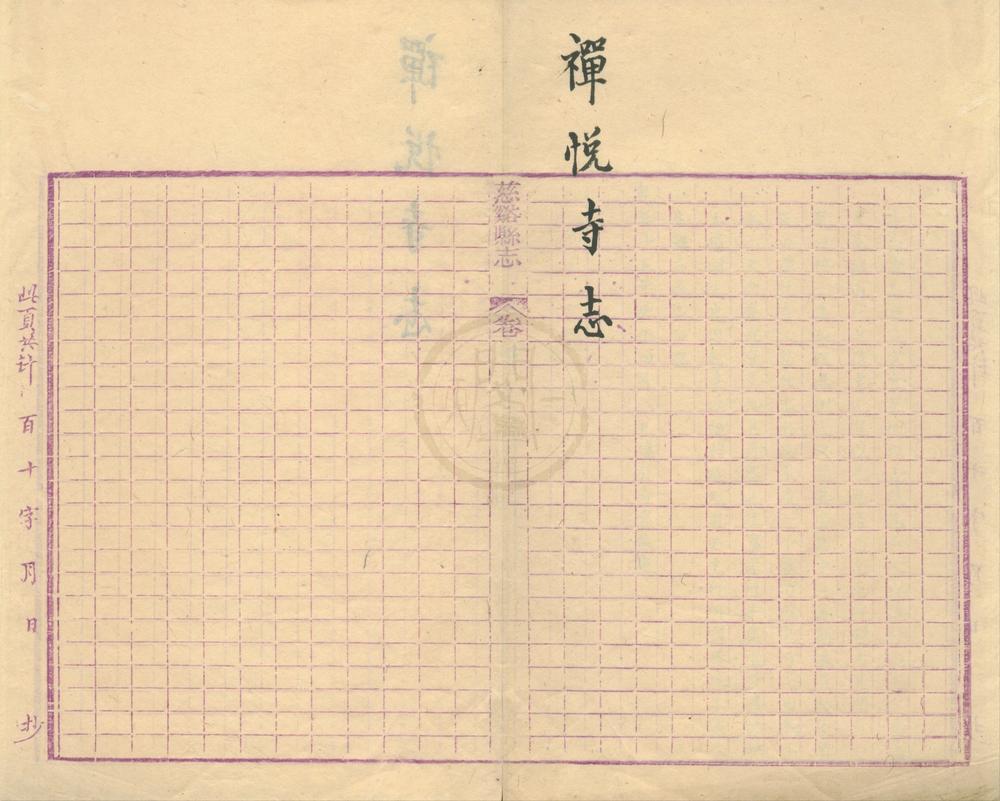 禪悅寺志
慈谿縣志
卷
此頁共計 百 十 字 月 日 抄